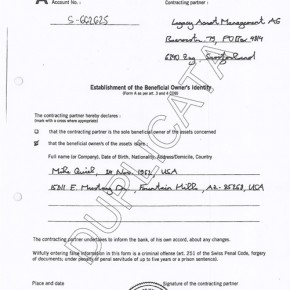 A
Account No. :
Contracting partner :
S-602625
Legacy Asset Management AG
75, PO Box
6340 Zug, Switzerland
Establishment of the Beneficial Owner's Identity
(Form A as per art. 3 and 4 CDB)
The contracting partner hereby declares :
(mark with a cross where appropriate)
that the contracting partner is the sole beneficial owner of the assets concerned
that the beneficial owner/s of the assets is/are :
Full name (or Company), Date of Birth, Nationality, Address/Domicile, Country
Nov. USA
E. Mustang Dr, Fountain Hills, AZ- USA
DUPLICATA
The contracting partner undertakes to inform the bank, of his own accord, about any changes.
Wilfully entering false information in this form is a criminal offense (art. 251 of the Swiss Penal Code, forgery
of documents; under penalty of penal servitude of up to five years or a prison sentence).
Place and date
Signature of the contracting partner